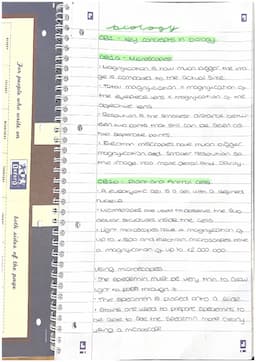 biology
CB1 - Key concepts in biology
CB1a - Microscopes
• Magnification is how much bigger the image
is compared to the actual size.
• Total magnification = magnification of
the eyepiece lens × magnification of the
objective lens
• Resolution is the smallest distance between
two points that still can be seen as
two seperate points.
• Electron microscopes have much bigger
magnification and smaller resolution so
the image has more detail and clarity.
CB1b - Plant and Animal cells
• A eukaryotic cell is a cell with a defined
nucleus
• Microscopes are used to observe the sub
cellular structures inside the cells
• Light microscopes have a magnification of
up to × 1500 and electron microscopes have
a magnification of up to
Using microscopes
• The specimen must be very thin to allow
light to pass through it
• This specimen is placed onto a slide
• Stains are used to prepare specimens to
be able to see the specimen more clearly
using a microscope
for people who write on
both sides of the page